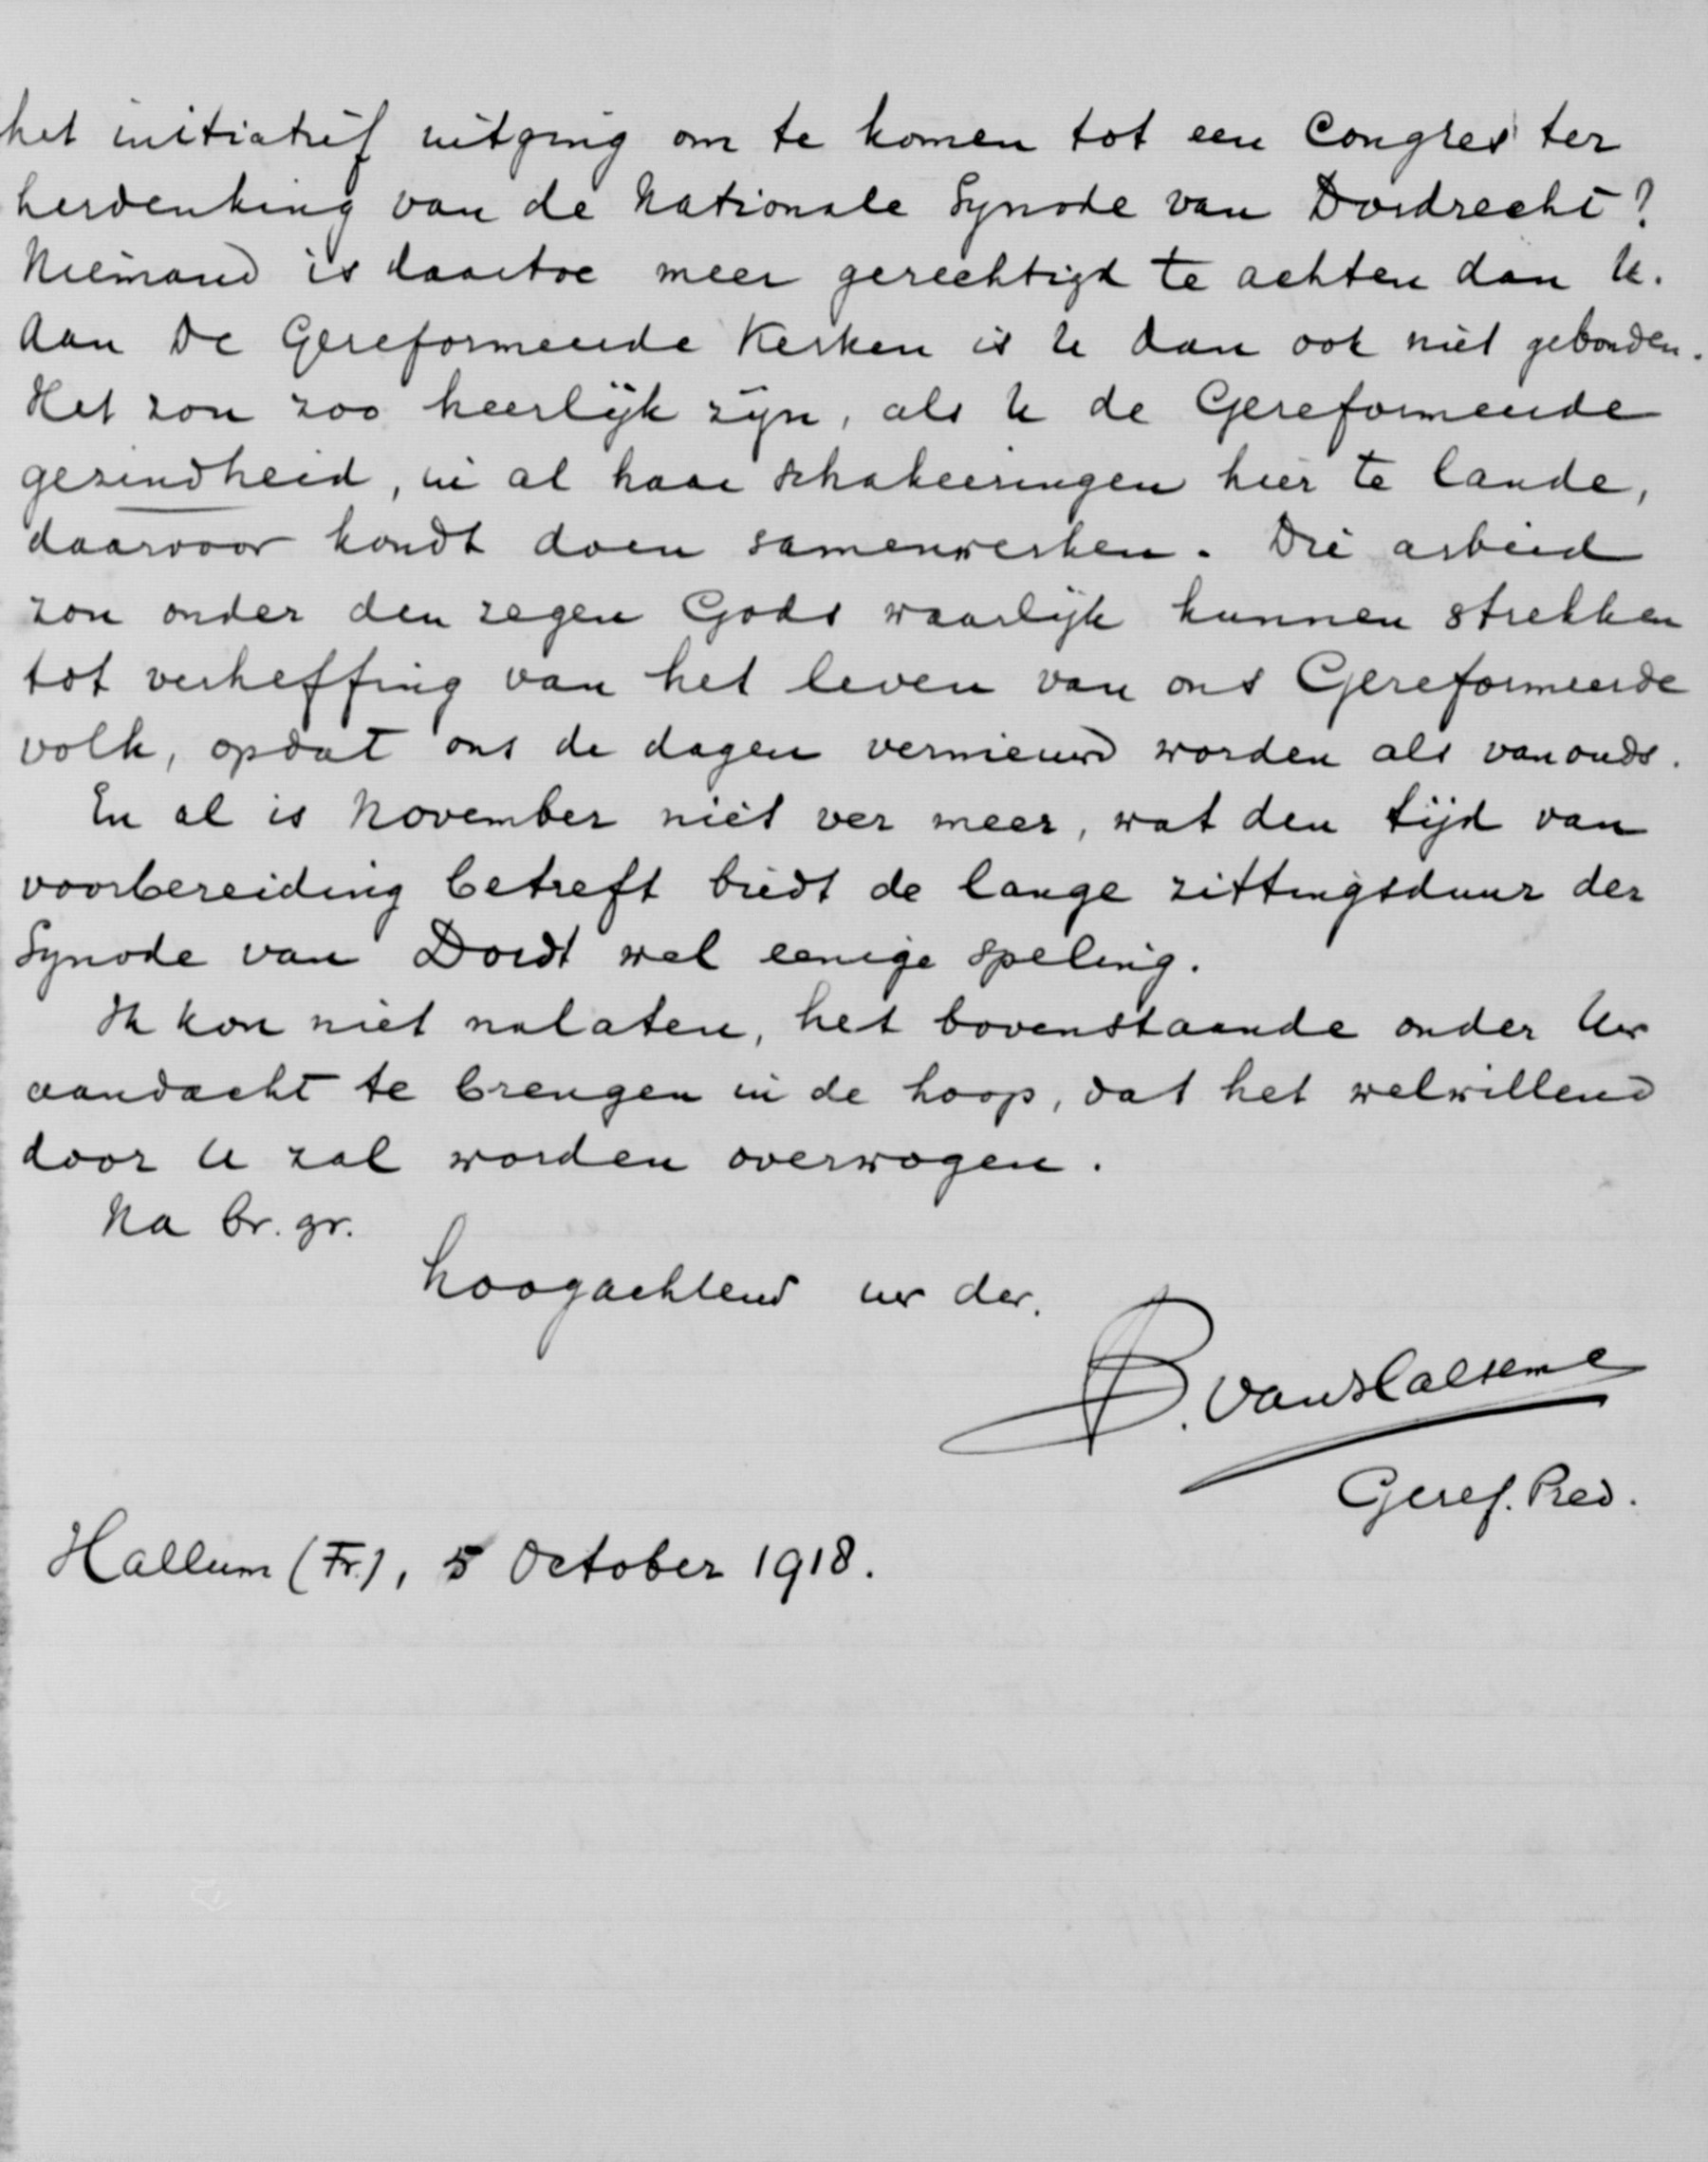 het initiatief uitging om te komen tot een Congres ter
herdenking van de Nationale Synode van Dordrecht?
Niemand is daartoe meer gerechtigd te achten dan U.
Aan De Gereformeerde Kerken is U dan ook niet gebonden.
Het zou zoo heerlijk zijn, als U de Gereformeerde
gezindheid, in al haar schakeeringen hier te lande,
daarvoor kondt doen samenwerken. Die arbeid
zou onder den zegen Gods waarlijk kunnen strekken
tot verheffing van het leven van ons Gereformeerde
volk, opdat ons de dagen vernieuwd worden als vanouds.
En al is November niet ver meer, wat den tijd van
voorbereiding betreft biedt de lange zittingsduur der
Synode van Dordt wel eenige speling.
Ik kon niet nalaten, het bovenstaande onder Uw
aandacht te brengen in de hoop, dat het welwillend
door U zal worden overwogen.
Na br. gr.
hoogachtend uw dr.
B. van Halsema
Geref. Pred.
Hallum (Fr.), 5 October 1918.